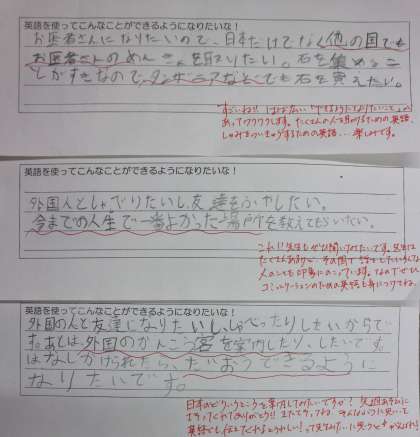 英語を使ってこんなことができるようになりたいな!
お医者さんになりたいので、日本だけでなく他の国でも
お医者さんのめんきょを取りたい。石を集めるこ
とがすきなので、タンザニアなどでも石を買えたい。
すごいね!!
たくさんの人を助けるための英語、
しゅみをついきゅうするための英語…楽しみです。
英語を使ってこんなことができるようになりたいな!
外国人としゃべりたいし、友達をふやしたい。
今までの人生で一番よかった場所を教えてもらいたい。
これ!!先生もぜひ聞いてみたいです。
コミュニケーションのための英語を身につけてね。
英語を使ってこんなことができるようになりたいな!
外国の人と友達になりたいし、しゃべったりしたいからで
す。あとは、外国のかんこう客を案内したり、したいです。
はなしかけられたら、たいおうできるように
なりたいです。
日本のどういうところを案内してみたいですか?